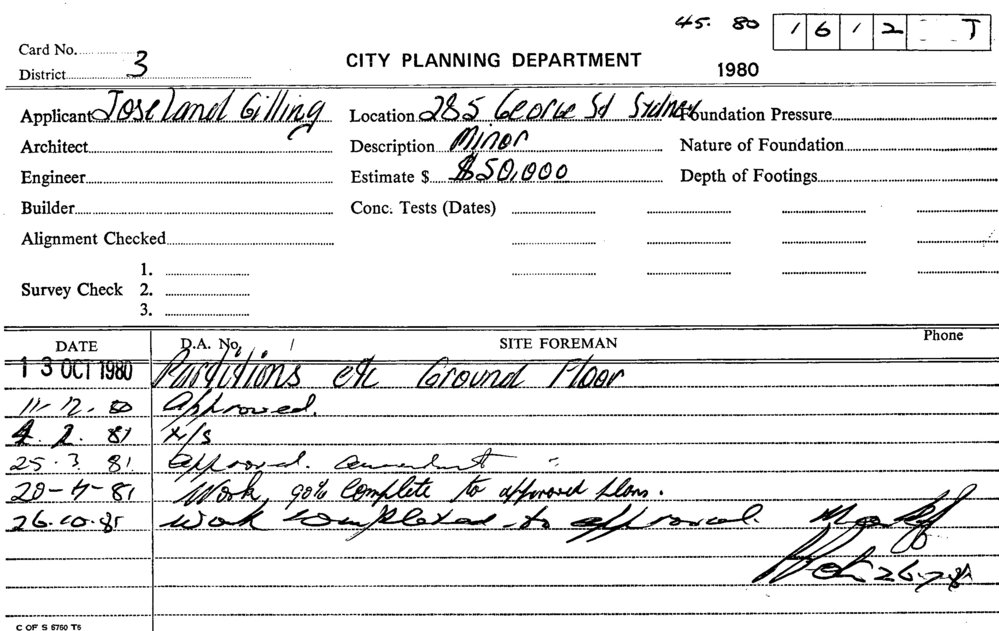 45. 80 1612 T
Card No.
District 3
CITY PLANNING DEPARTMENT
1980
Applicant Joseland Gilling Location 285 George St Sydney Foundation Pressure
Architect Description Minor Nature of Foundation
Engineer Estimate $ $50,000 Depth of Footings
Builder Conc. Tests (Dates)
Alignment Checked
1.
Survey Check 2.
3.
DATE D.A. No. SITE FOREMAN Phone
13 OCT 1980 Partitions etc Ground Floor
11. 12. 80 Approved.
4. 2. 81 x/s
25. 3. 81. approval. amendment
20-4-81 Work, 90% complete to approved plans.
26.10.81 Work completed to approval.
C OF S 6760 T6